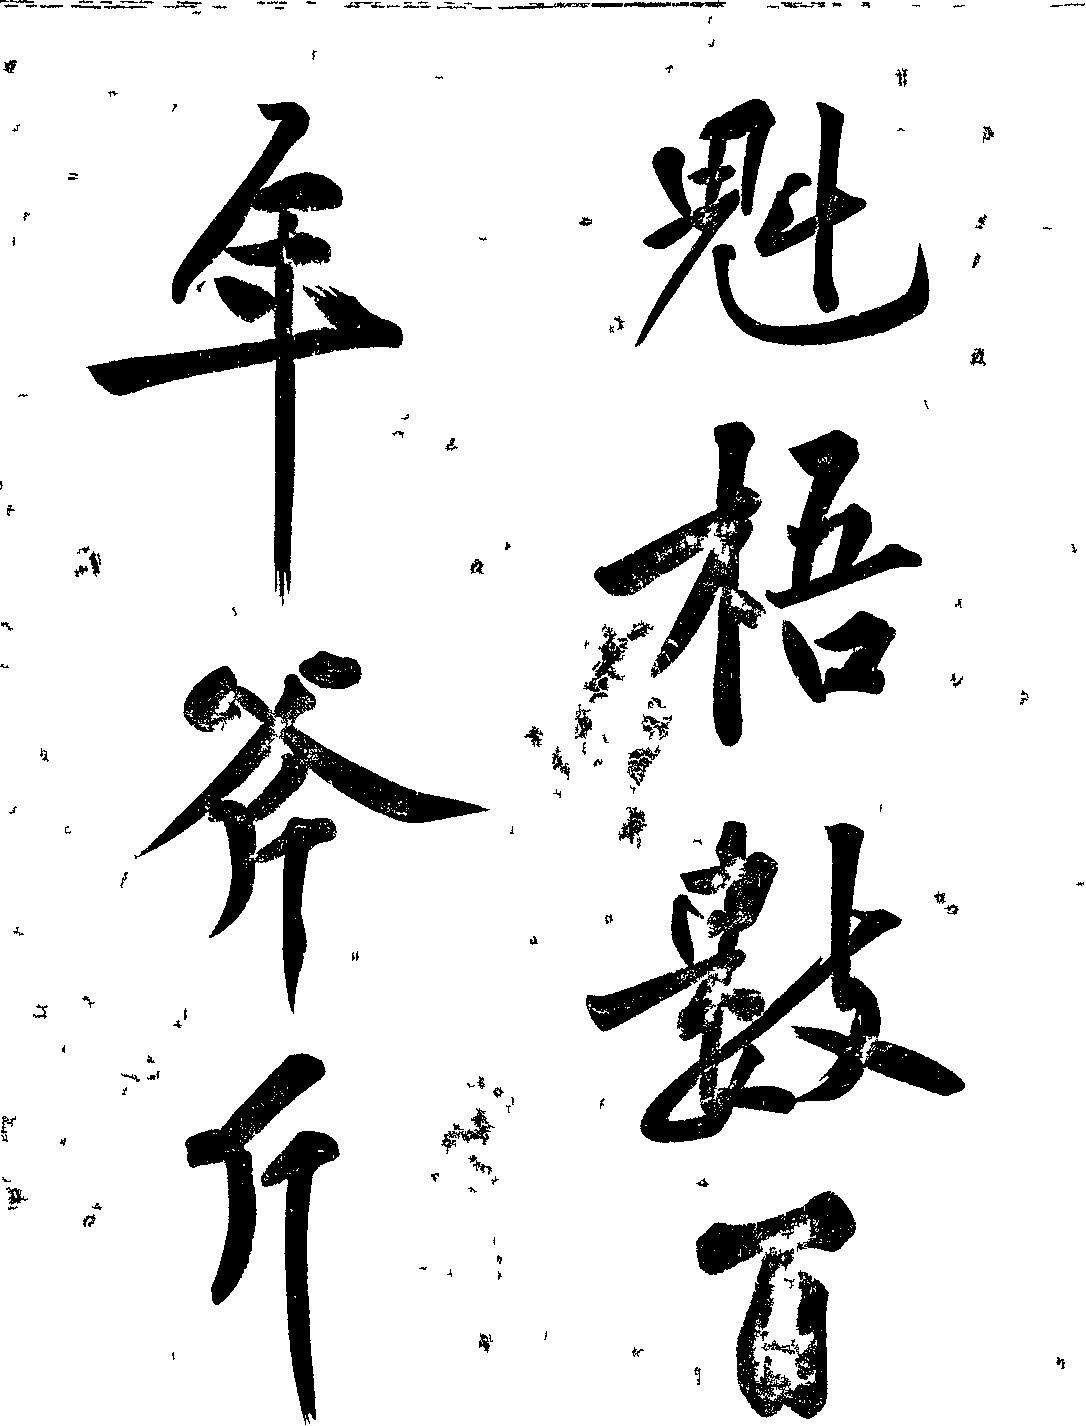 魁梧數百
年斧斤